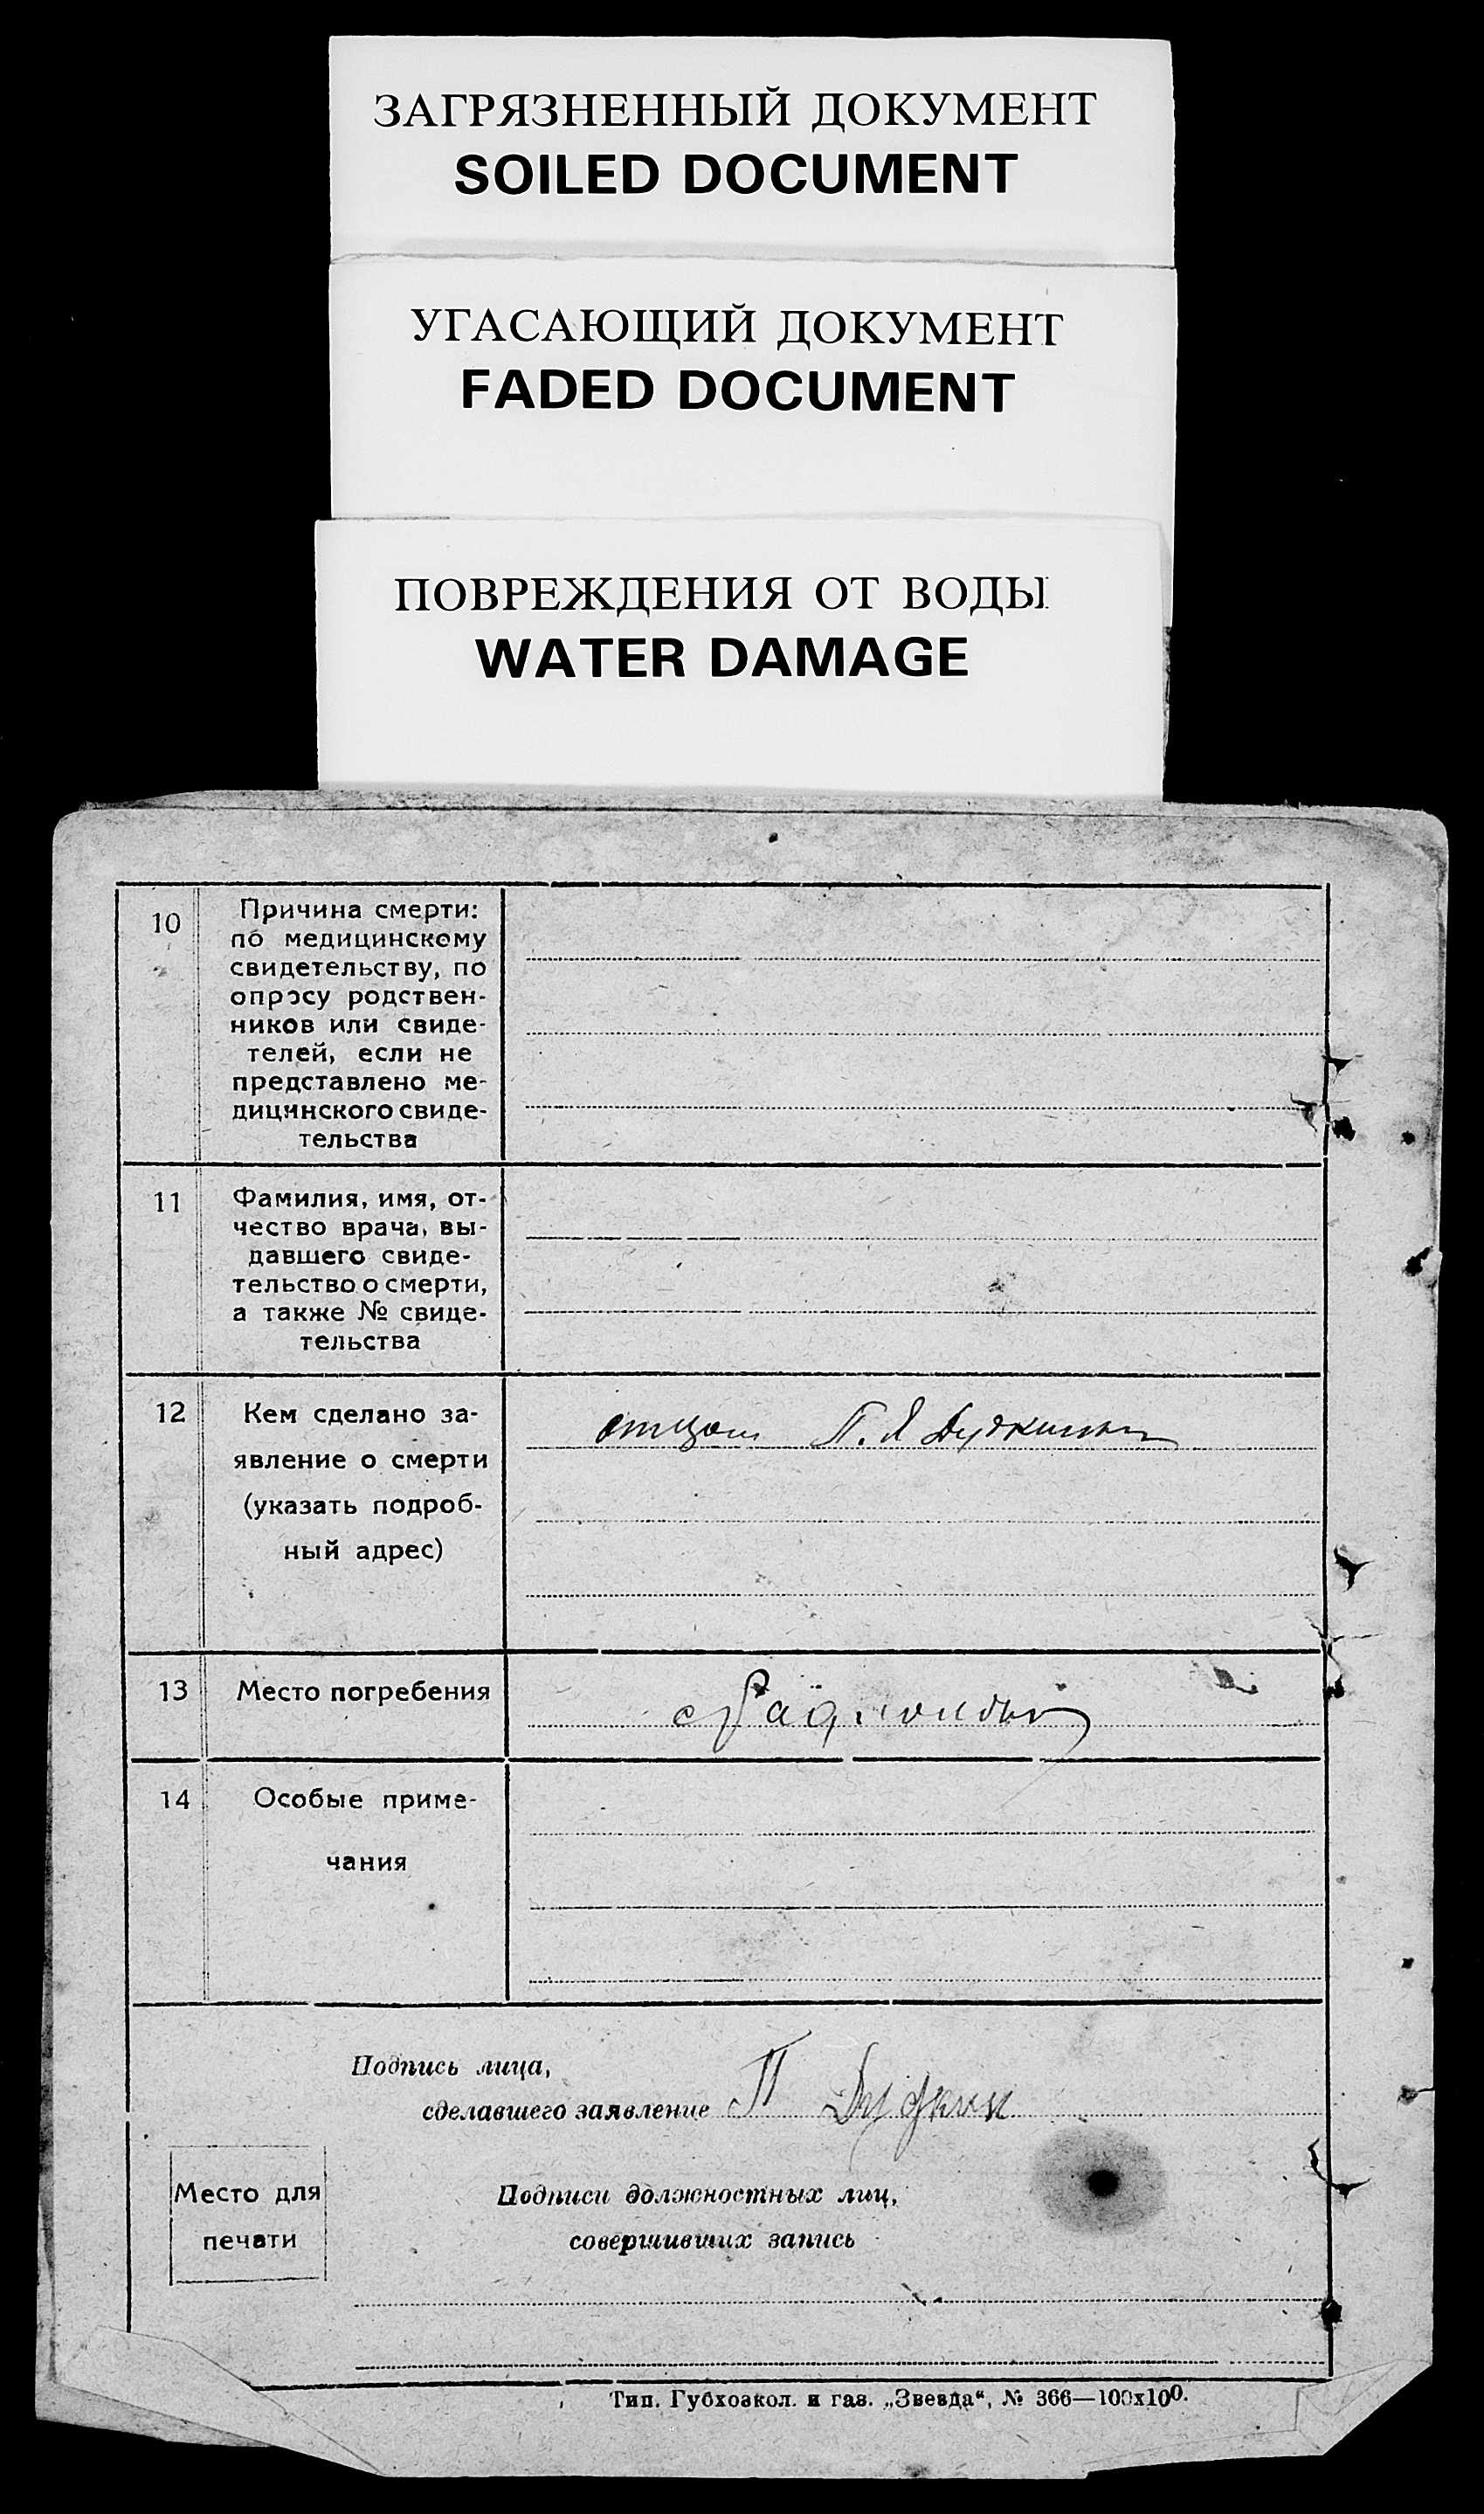 ЗАГРЯЗНЕННЫЙ ДОКУМЕНТ
SOILED DOCUMENT
УГАСАЮЩИЙ ДОКУМЕНТ
FADED DOCUMENT
ПОВРЕЖДЕНИЯ ОТ ВОДЫ
WATER DAMAGE
10 Причина смерти:
по медицинскому
свидетельству, по
опросу родствен-
ников или свиде-
телей, если не
представлено ме-
дицинского свиде-
тельства
11 Фамилия, имя, от-
чество врача, вы-
давшего свиде-
тельство о смерти,
а также № свиде-
тельства
12 Кем сделано за- отцом П. Я Дудкиным
явление о смерти
(указать подроб-
ный адрес)
13 Место погребения
14 Особые приме-
чания
Подпись лица,
сделавшего заявление П Дудкин
Место для
печати
Подписи должностных лиц,
совершивших запись
Тип. Губхозкол. и газ. „Звезда“, № 366—100х100.